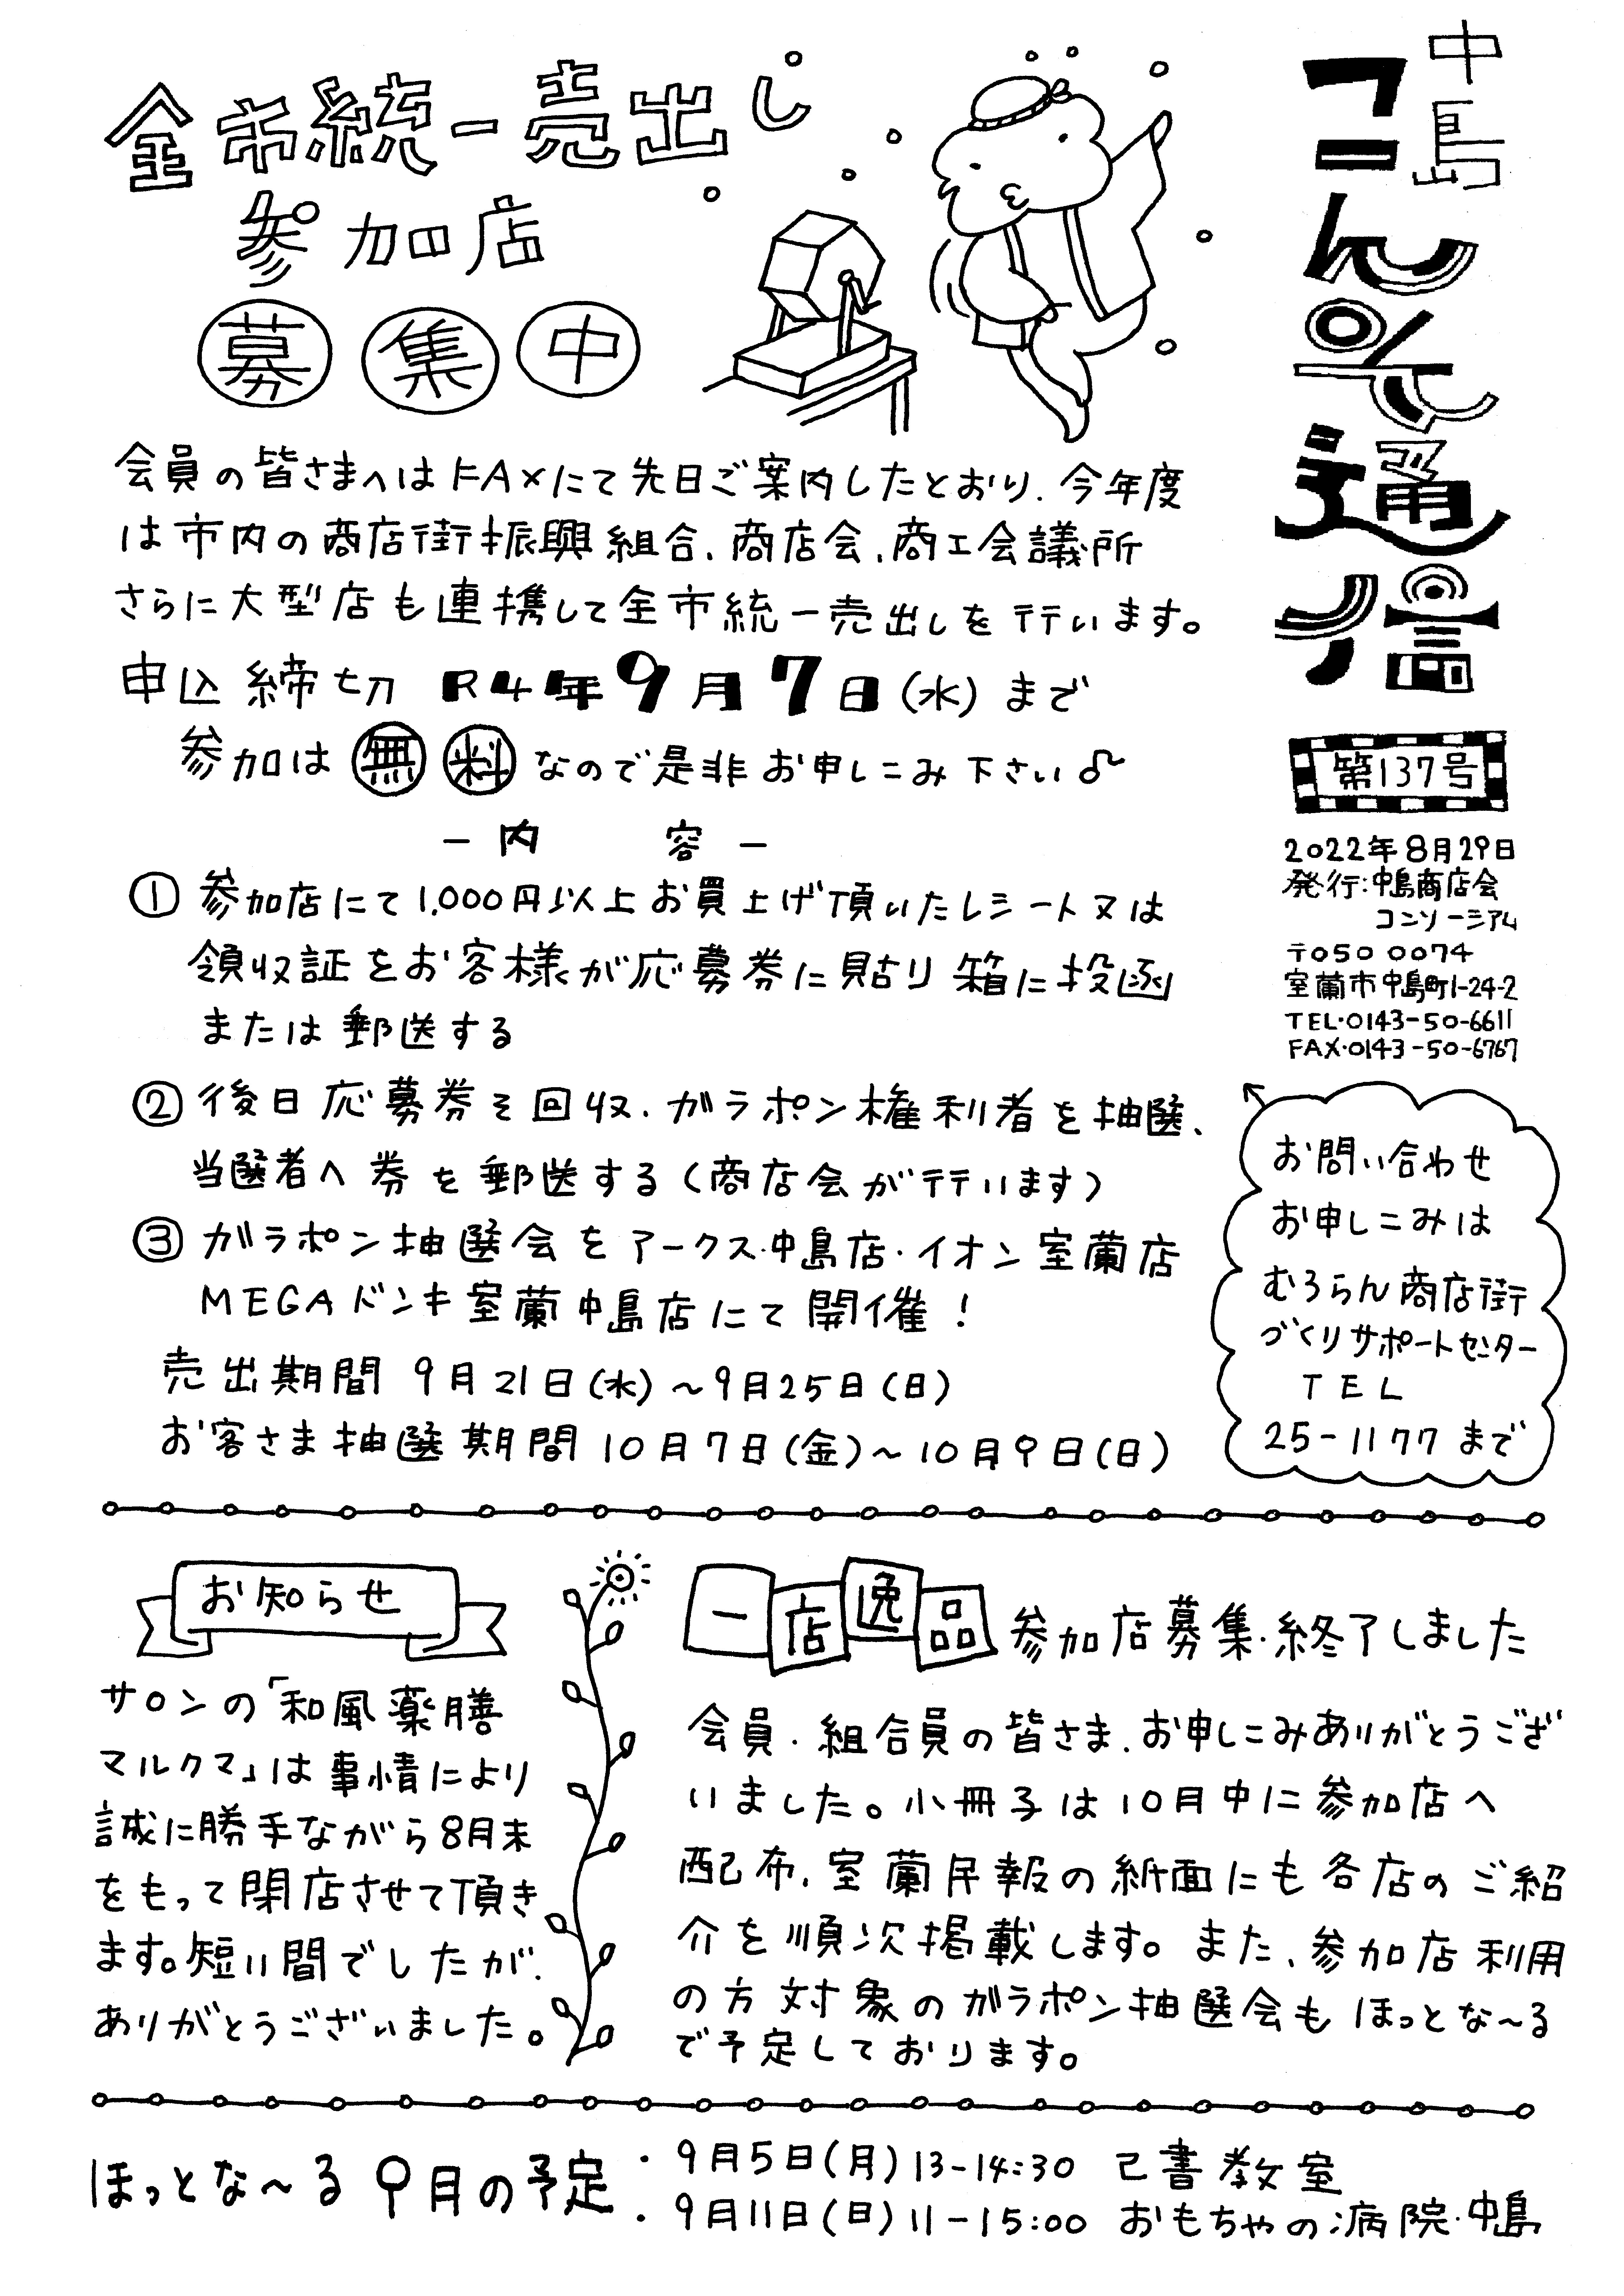 中島
コンそ通信
第137号
2022年8月29日
発行:中島商店会
コンソーシアム
〒050 0074
室蘭市中島町1-24-2
TEL・0143-50-6611
FAX・0143-50-6767
全市統一売出し
参加店
募集中
会員の皆さまへはFAXにて先日ご案内したとおり、今年度
は市内の商店街振興組合、商店会、商工会議所
さらに大型店も連携して全市統一売出しを行います。
申込締切 R4年9月7日(水)まで
参加は無料なので是非お申しこみ下さい♪
-内 容-
① 参加店にて1,000円以上お買上げ頂いたレシート又は
領収証をお客様が応募券に貼り箱に投函
または郵送する
② 後日応募券を回収、ガラポン権利者を抽選、
当選者へ券を郵送する(商店会が行います)
③ ガラポン抽選会をアークス・中島店・イオン室蘭店
MEGAドンキ室蘭中島店にて開催!
売出期間 9月21日(水)~9月25日(日)
お客さま抽選期間 10月7日(金)~10月9日(日)
お問い合わせ
お申しこみは
むろらん商店街
づくりサポートセンター
TEL
25-1177まで
お知らせ
サロンの「和風薬膳
マルクマ」は事情により
誠に勝手ながら8月末
をもって閉店させて頂き
ます。短い間でしたが、
ありがとうございました。
一店逸品 参加店募集・終了しました
会員・組合員の皆さま、お申しこみありがとうござ
いました。小冊子は10月中に参加店へ
配布、室蘭民報の紙面にも各店のご紹
介を順次掲載します。また、参加店利用
の方対象のガラポン抽選会もほっとな~る
で予定しております。
ほっとな~る 9月の予定
・9月5日(月)13-14:30 己書教室
・9月11日(日)11-15:00 おもちゃの病院・中島